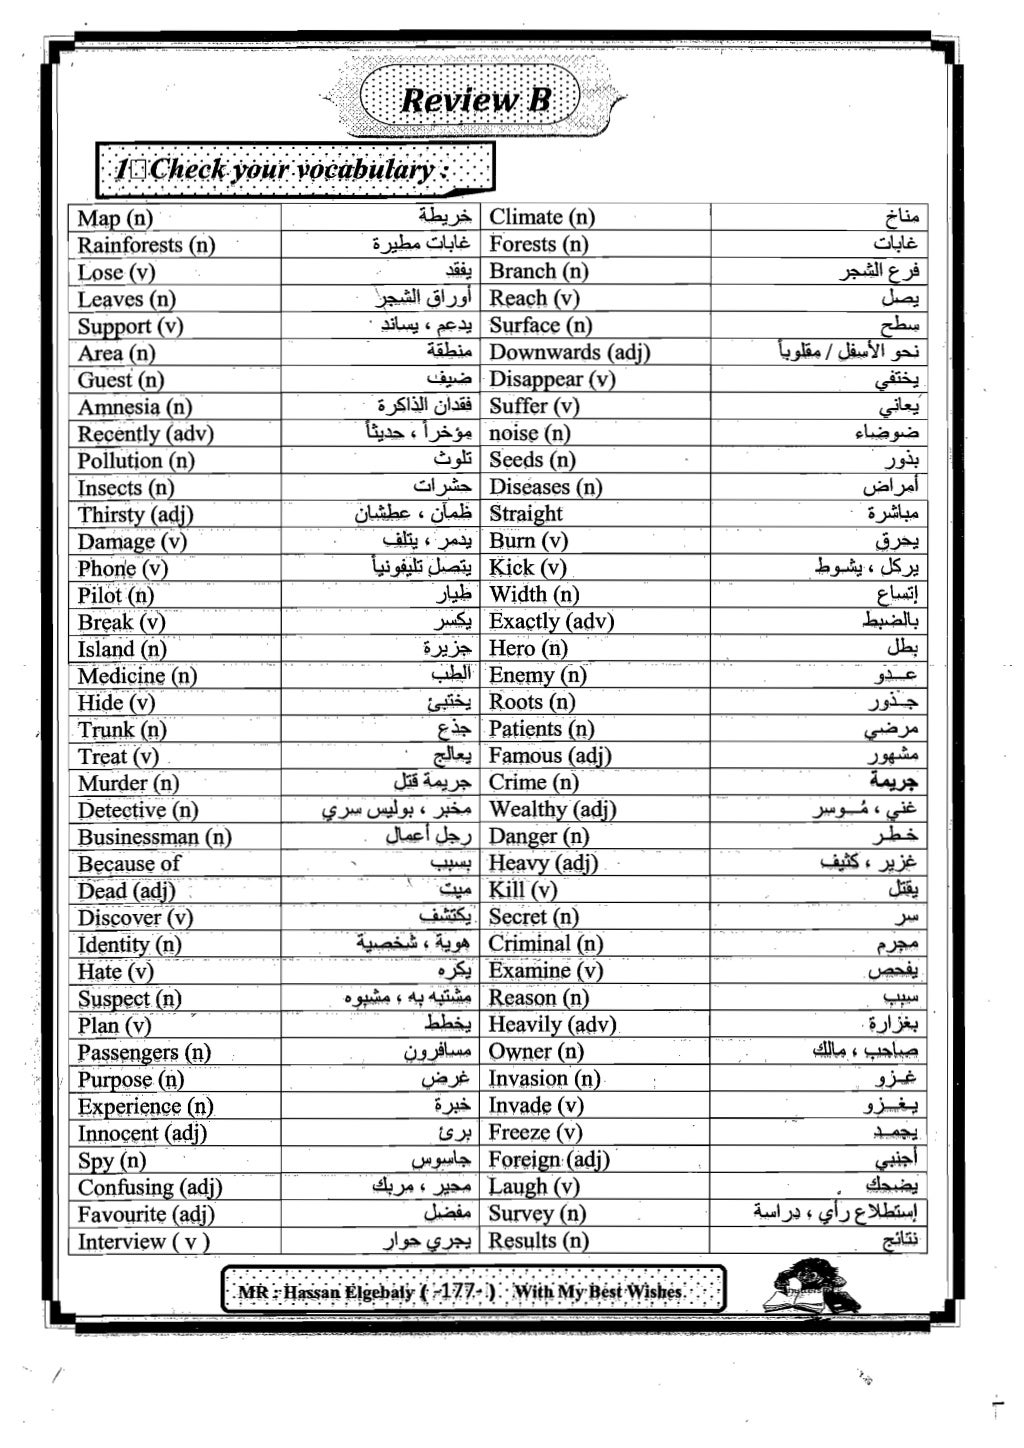 Review B
1 Check your vocabulary :
Map (n) خريطة Climate (n) مناخ
Rainforests (n) غابات مطيرة Forests (n) غابات
Lose (v) يفقد Branch (n) فرع الشجر
Leaves (n) أوراق الشجر Reach (v) يصل
Support (v) يدعم ، يساند Surface (n) سطح
Area (n) منطقة Downwards (adj) نحو الأسفل / مقلوباً
Guest (n) ضيف Disappear (v) يختفي
Amnesia (n) فقدان الذاكرة Suffer (v) يعاني
Recently (adv) مؤخراً ، حديثاً noise (n) ضوضاء
Pollution (n) تلوث Seeds (n) بذور
Insects (n) حشرات Diseases (n) أمراض
Thirsty (adj) ظمآن ، عطشان Straight مباشرة
Damage (v) يدمر ، يتلف Burn (v) يحرق
Phone (v) يتصل تليفونياً Kick (v) يركل ، يشوط
Pilot (n) طيار Width (n) إتساع
Break (v) يكسر Exactly (adv) بالضبط
Island (n) جزيرة Hero (n) بطل
Medicine (n) الطب Enemy (n) عـدو
Hide (v) يختبئ Roots (n) جـذور
Trunk (n) جذع Patients (n) مرضي
Treat (v) يعالج Famous (adj) مشهور
Murder (n) جريمة قتل Crime (n) جريمة
Detective (n) مخبر ، بوليس سري Wealthy (adj) غني ، مُـوسر
Businessman (n) رجل أعمال Danger (n) خطر
Because of بسبب Heavy (adj) غزير ، كثيف
Dead (adj) ميت Kill (v) يقتل
Discover (v) يكتشف Secret (n) سر
Identity (n) هوية ، شخصية Criminal (n) مجرم
Hate (v) يكره Examine (v) يفحص
Suspect (n) مشتبه به ، مشبوه Reason (n) سبب
Plan (v) يخطط Heavily (adv) بغزارة
Passengers (n) مسافرون Owner (n) صاحب ، مالك
Purpose (n) غرض Invasion (n) غـزو
Experience (n) خبرة Invade (v) يـغـزو
Innocent (adj) برئ Freeze (v) يجمـد
Spy (n) جاسوس Foreign (adj) أجنبي
Confusing (adj) محير ، مربك Laugh (v) يضحك
Favourite (adj) مفضل Survey (n) إستطلاع رأي ، دراسة
Interview ( v ) يجري حوار Results (n) نتائج
MR : Hassan Elgebaly ( -177- ) With My Best Wishes